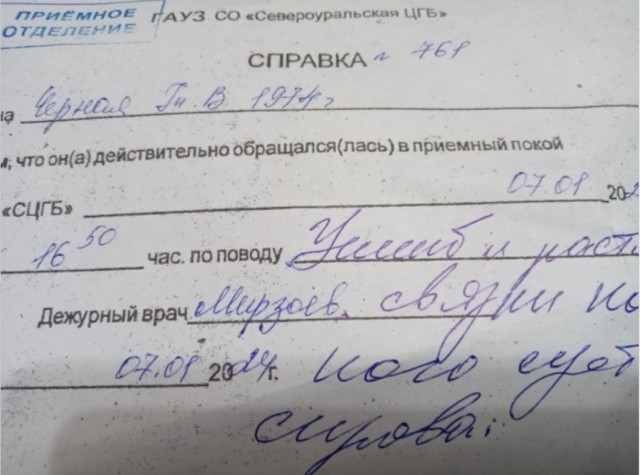 ПРИЁМНОЕ ГАУЗ СО «Североуральская ЦГБ»
ОТДЕЛЕНИЕ
СПРАВКА № 761
на Черная Гн. В. 1974г
м, что он(а) действительно обращался(лась) в приемный покой
07.01 202
«СЦГБ»
16 50 час. по поводу Ушиб и раст
Дежурный врач Мирзоев. связки
07.01 2024 г. ного суст
справа.